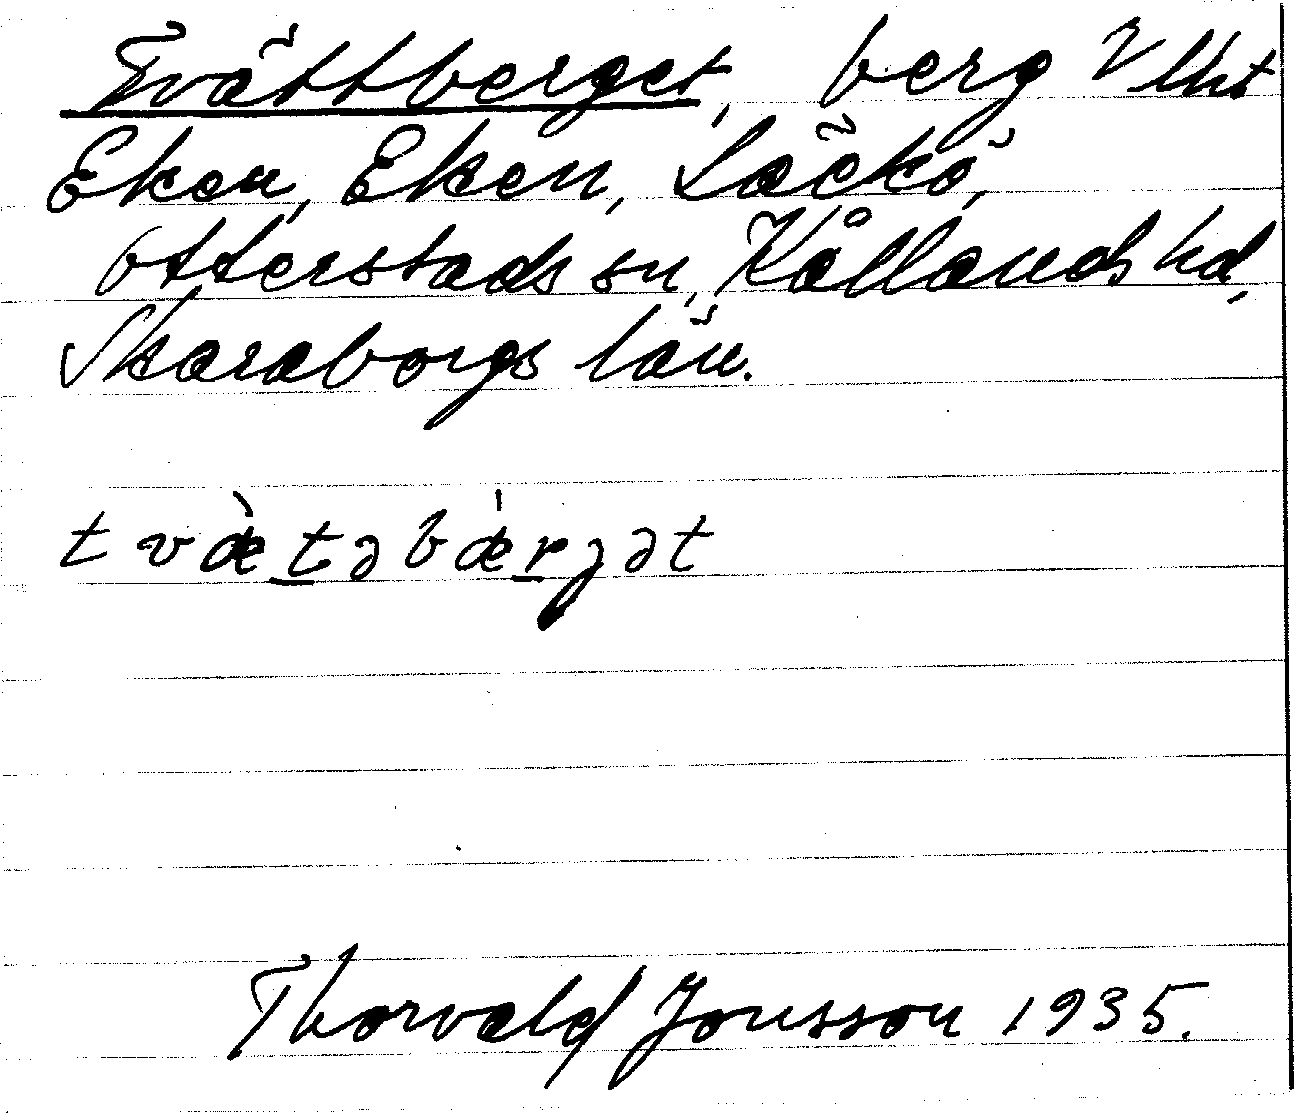 Tvättberget, berg V lht
Eken, Eken, Läckö,
Otterstads sn, Kållands hd,
Skaraborgs län.
tvæ̀təbæ̍rjət
Thorvald Jonsson 1935.